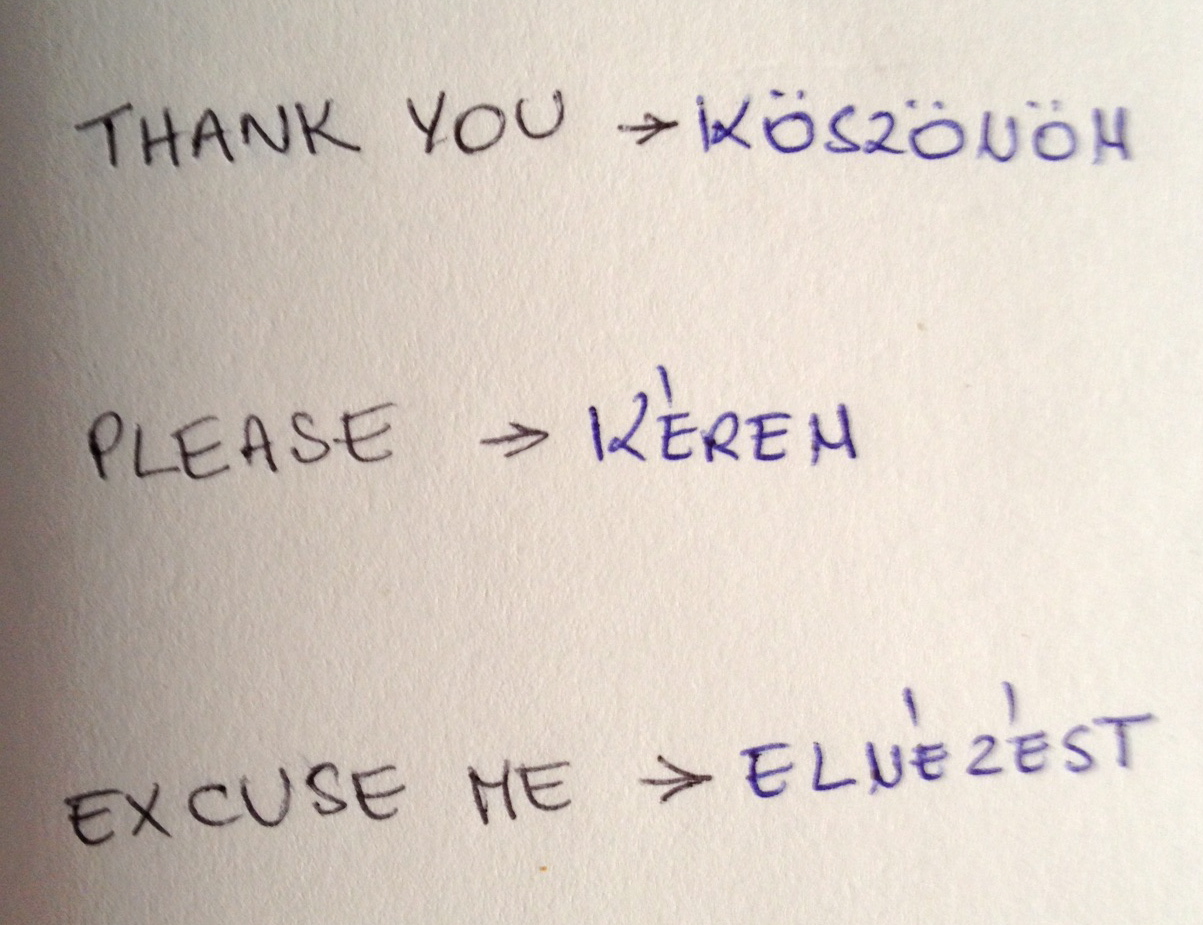 THANK YOU → KÖSZÖNÖM
PLEASE → KÉREM
EXCUSE ME → ELNÉZÉST